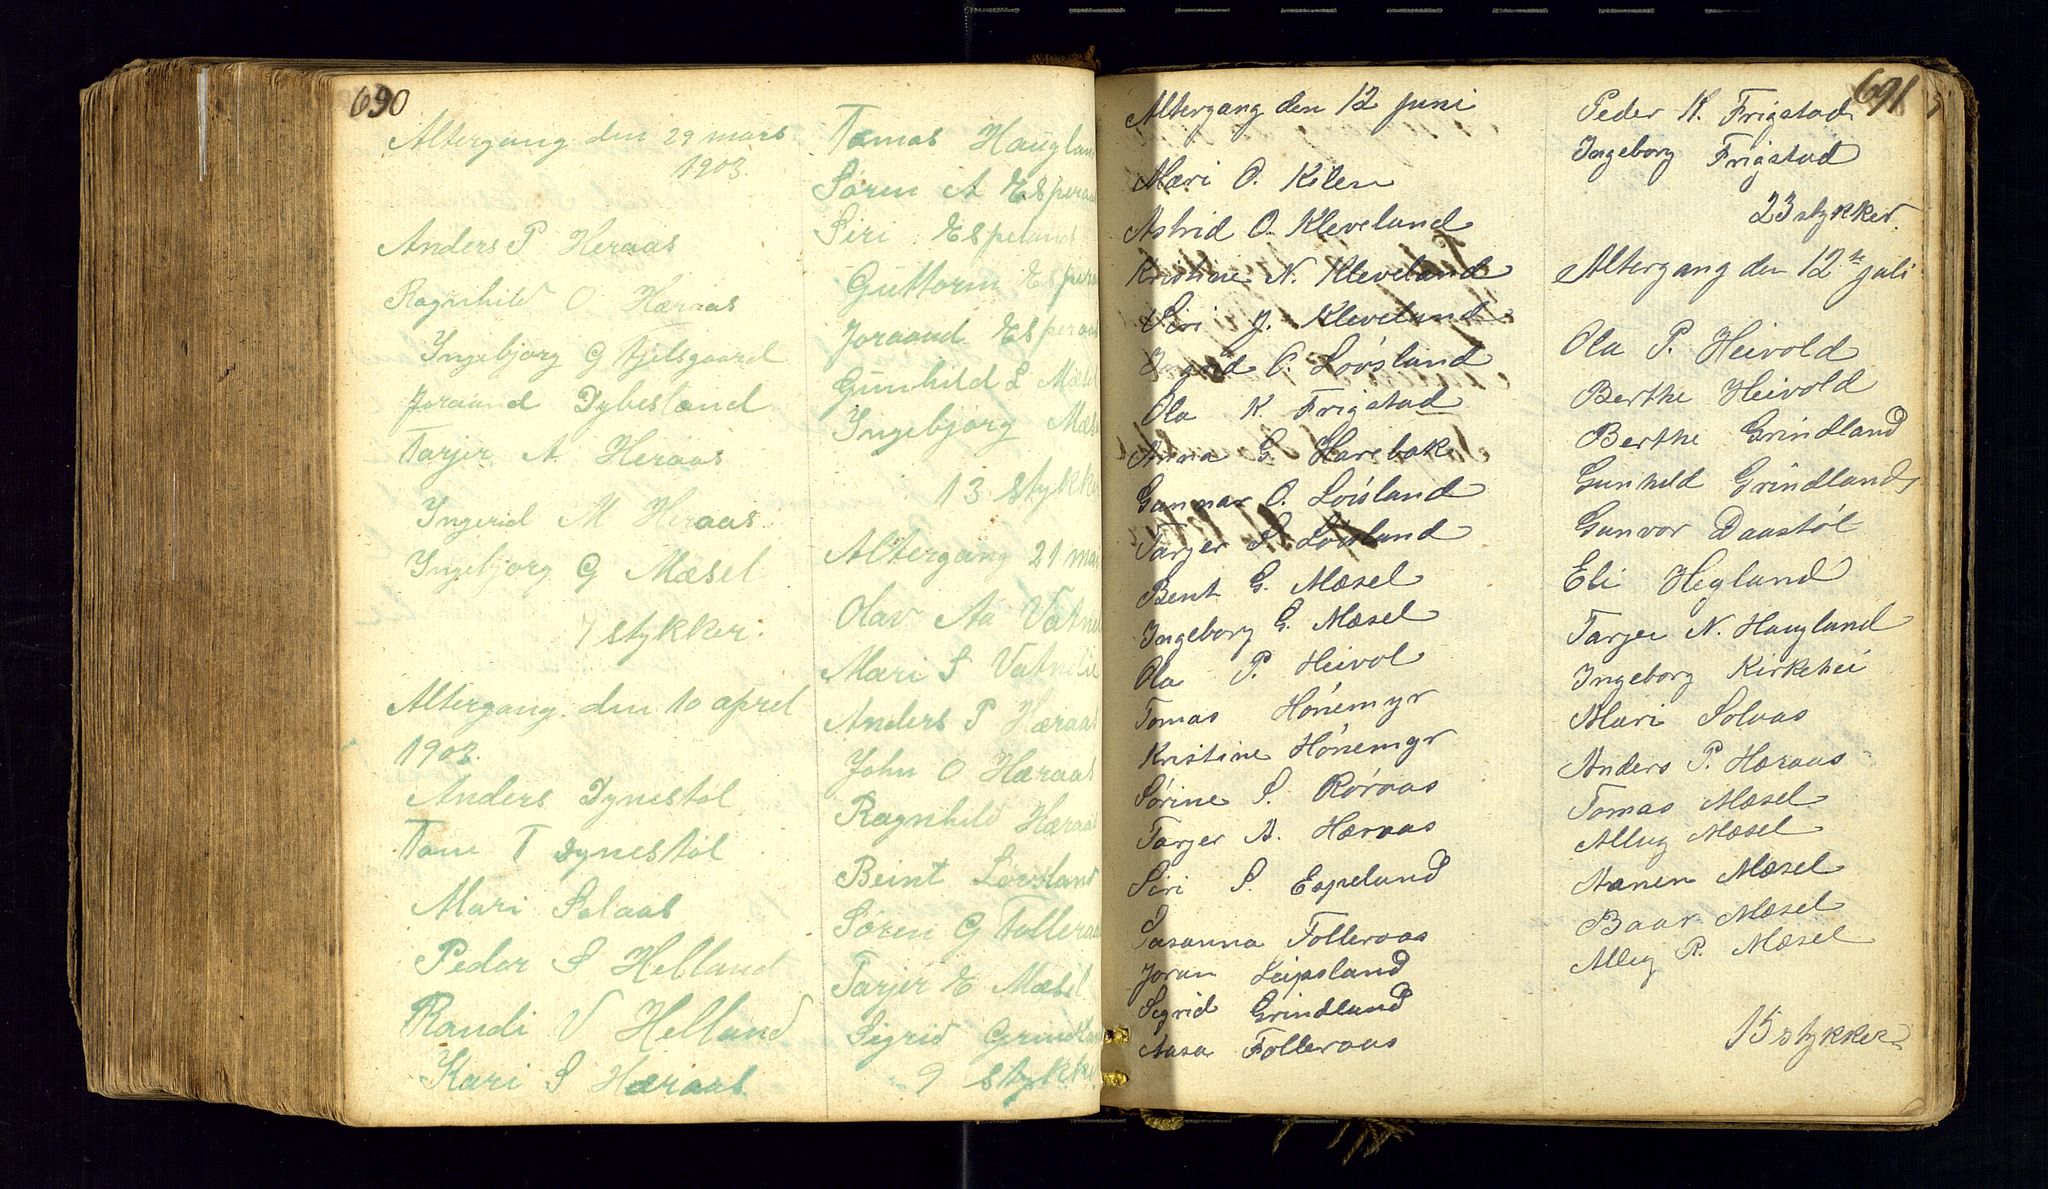 690
Altergang den 29 mars
1903.
Anders P Heraas
Ragnhild O Hæraas
Ingebjorg G Kjelsgaard
Joraand Dybesland
Tarjer A. Heraas
Ingerid M Heraas
Ingebjorg G Mæsel
7 stykker.
Altergang den 10 april
1903.
Anders Dynestøl
Tone T Dynestøl
Mari Solaas
Peder S Helland
Randi V Helland
Kari S Hæraas
Tomas Haugland
Søren A Esperaas
Siri Espeland
Guttorm Espera
Joraand Esperaas
Gunhild L Mæsel
Ingebjorg Mæs
13 stykke
Altergang 21 mai
Olav Aa Vatnelie
Mari S Vatnelie
Anders P Hæraas
John O Hæraas
Ragnhild Hæraas
Beint Løvsland
Søren G Tolleraas
Tarjer E Mæsel
Sigrid Grindlan
9 stykke
691
Altergang den 12 juni
Mari O. Kilen
Astrid O. Kleveland
Kristine N. Kleveland
Siri J. Kleveland
Ingrid O. Lovsland
Ola K. Frigstad
Anna G Harebak
Gunmar O. Lovsland
Tarjer S. Lovsland
Bent G. Mæsel
Ingeborg G. Mæsel
Ola P. Heivol
Tomas Hónemyr
Kristine Hónemyr
Sórine S. Róraas
Tarjer A. Hæraas
Siri S. Espeland
Susanna Tolleraas
Joran Leipsland
Sigrid Grindland
Aasa Tolleraas
Peder K. Frigstad
Ingeborg Frigstad
23 stykker.
Altergang den 12te juli
Ola P. Heivold
Berthe Heivold
Berthe Grindland
Gunheld Grindland
Gunvor Daastól
Eli Hegland
Tarjer N. Haugland
Ingeborg Kirkehei
Mari Solaas
Anders P. Hæraas
Tomas Mæsel
Alleg Mæsel
Aanen Mæsel
Baar Mæsel
Alleg R. Mæsel
15 stykker